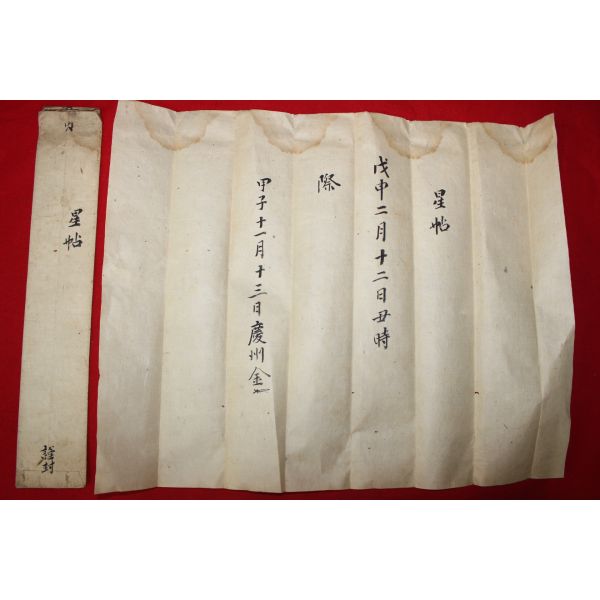 星帖
戊申二月十二日丑時
際
甲子十一月十三日慶州金
內
星帖
謹封